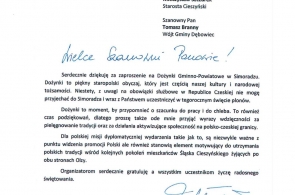 Starosta Cieszyński
Szanowny Pan
Tomasz Branny
Wójt Gminy Dębowiec
Wielce Szanowni Panowie!
Serdecznie dziękuję za zaproszenie na Dożynki Gminno-Powiatowe w Simoradzu.
Dożynki to piękny staropolski obyczaj, który jest częścią naszej kultury i narodowej
tożsamości. Niestety, z uwagi na obowiązki służbowe w Republice Czeskiej nie mogę
przyjechać do Simoradza i wraz z Państwem uczestniczyć w tegorocznym święcie plonów.
Dożynki to moment, by przypomnieć o szacunku do pracy i do chleba. To również
czas podziękowań, dlatego proszę także ode mnie przyjąć wyrazy wdzięczności za
pielęgnowanie tradycji oraz za działania aktywizujące społeczność na polsko-czeskiej granicy.
Dla polskiej misji dyplomatycznej wydarzenia takie jak to, są niezwykle ważne z
punktu widzenia promocji Polski ale również stanowią element motywujący do utrzymania
polskich tradycji wśród kolejnych pokoleń mieszkańców Śląska Cieszyńskiego żyjących po
obu stronach Olzy.
Organizatorom serdecznie gratuluję a wszystkim uczestnikom życzę radosnego
świętowania.